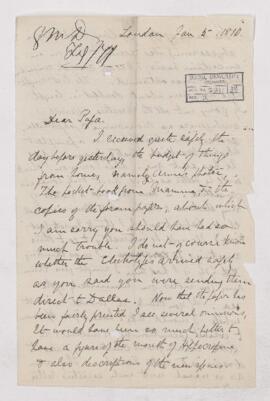 London Jan 5th 1890.
Dear Papa.
I received quite safely the
day before yesterday the budget of things
from home, namely Annie's photos,
The pocket-book from Mamma, & the
copies of the foram paper, about which
I am sorry you should have had so
much trouble. I do not of course know
whether the Electrotypes arrived safely
as you said you were sending them
direct to Dallas. Now that the paper has
been fairly printed I see several omissions,
It would have been so much better to
have a figure of the mouth of
& also descriptions of the new species